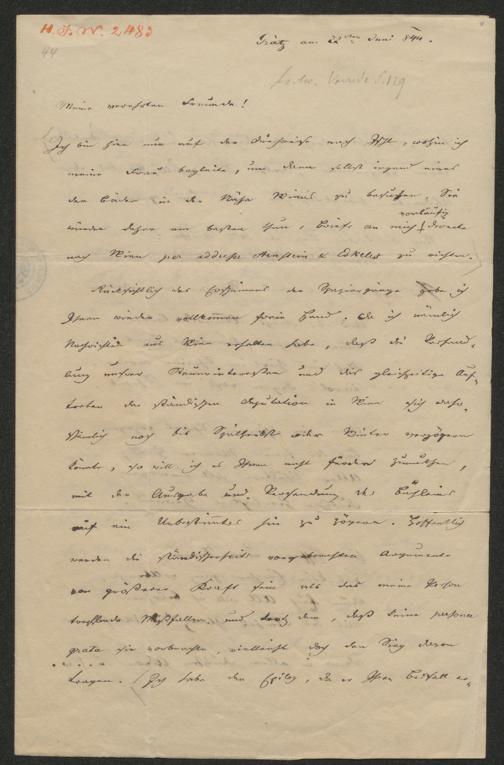 H. I. N. 2483
44
Grätz am 22ten Juni 844.
S. 129
Meine verehrten Freunde!
Ich bin hier nur auf der Durchreise nach Ischl, wohin ich
meine Frau begleite, um dann selbst irgend eines
der Bäder in der Nähe Wiens zu besuchen. Sie
vorläufig
würden daher am besten thun, Briefe an mich directe
nach Wien per addresse Arnstein & Eskeles zu richten.
Rücksichtlich des Erscheinens der Spaziergänge gebe ich
Ihnen wieder vollkommen freie Hand, da ich nämlich
Nachrichten aus Wien erhalten habe, daß die Verhand-
lung unsrer Staminteressen und das gleichzeitige Auf-
treten der ständischen Deputation in Wien sich
noch bis Spätherbst oder Winter verzögern
könnte, so will ich es Ihnen nicht zumuthen,
mit der Ausgabe und Versendung des Büchleins
auf ein Unbestimmtes hin zu zögern. Hoffentlich
werden die ständischerseits vorgebrachten Argumente
von größerer Kraft sein als das meine Person
treffende Mißfallen, und trotz dem, daß keine persona
grata sie vorbrachte, vielleicht doch den Sieg davon
tragen. Ich habe den Epilog, da er Ihren Beifall er-